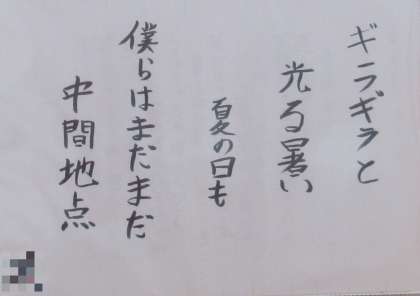 ギラギラと
光る暑い
夏の日も
僕らはまだまだ
中間地点